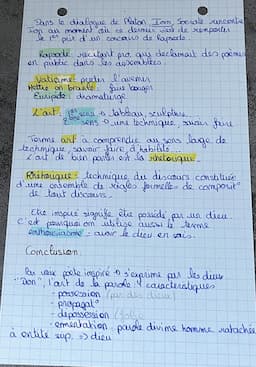 Dans le dialogue de Platon, Ion, Socrate rencontre
Ion au moment où ce dernier vient de remporter
le 1er prix d'un concours de rapsode.
Rapsode : récitant pro qui déclamait des poèmes
en public dans les assemblées.
Vaticiné : prédire l'avenir
Mettre en branle : faire bouger
Euripide : dramaturge
L'art : 1er sens → tableau, sculpture...
2ème sens → une technique, savoir faire
Terme art à comprendre au sens large de
technique, savoir faire, d'habileté.
L'art de bien parler est la rhétorique
Rhétorique : technique du discours constituée
d'une ensemble de règles formelles de composit°
de tout discours.
Etre inspiré signifie être possédé par un dieu
C'est pourquoi on utilise aussi le terme
enthousiasme : avoir le dieu en soi.
Conclusion :
vrai poète inspiré → s'exprime par les dieux
"Don", l'art de la parole 4 caractéristiques
- possession (par des dieux)
- propagat°
- dépossession
- parole divine homme rattachée
à entité sup. → dieu